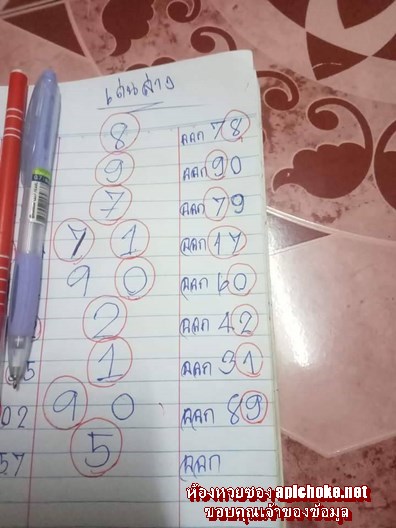 เด่นล่าง
8 ออก 78
9 ออก 90
7 ออก 79
7 1 ออก 17
9 0 ออก 60
2 ออก 42
5 1 ออก 31
02 9 0 ออก 89
57 5 ออก
ห้องหวยซอง apichoke.net
ขอบคุณเจ้าของข้อมูล